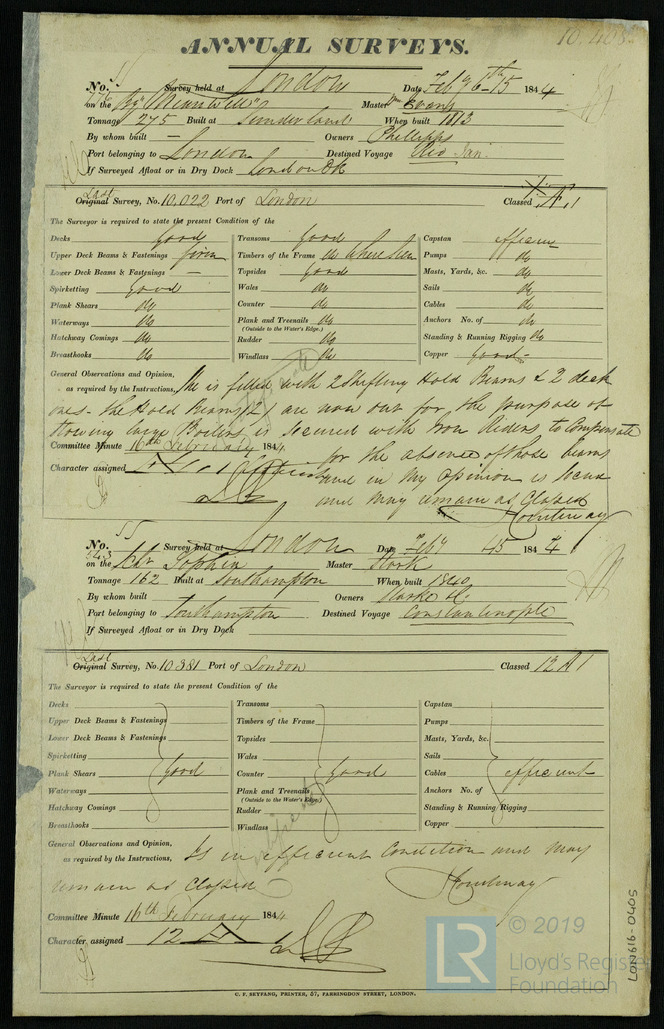 10,408
ANNUAL SURVEYS.
No. 51 Survey held at London Date Feby 6th 15 1844
on the Bg Master Wm Evans
Tonnage 275 Built at Sunderland When built 1813
By whom built — Owners Phillipps
Port belonging to London Destined Voyage Rio Jan:
If Surveyed Afloat or in Dry Dock London Dk
Last
Original Survey, No. 10,022 Port of London Classed Æ 1
The Surveyor is required to state the present Condition of the
Decks good Transoms good Capstan efficien
Upper Deck Beams & Fastenings firm Timbers of the Frame do where seen Pumps do
Lower Deck Beams & Fastenings — Topsides good Masts, Yards, &c. do
Spirketting good Wales do Sails do
Plank Shears do Counter do Cables do
Waterways do Plank and Treenails do Anchors No. of do
(Outside to the Water's Edge.)
Hatchway Comings do Rudder do Standing & Running Rigging do
Breasthooks do Windlass do Copper good
General Observations and Opinion,
as required by the Instructions, She is filled with 2 shifting Hold Beams & 2 deck
ones - the Hold Beams (2) are now out for the purpose of
stowing large Boilers, is secured with Iron to Compensate
for the absence of those beams
Committee Minute 16th February 1844
Character assigned Æ 1
and in my opinion is
and may remain as Classed
No. 55 Survey held at London Date Feby 15 184 4
on the Schr Sophia Master Stork
Tonnage 162 Built at Southampton When built 1840
By whom built Owners
Port belonging to Southampton Destined Voyage Constantinople
If Surveyed Afloat or in Dry Dock
Last
Original Survey, No. 10,381 Port of London Classed 12 A 1
The Surveyor is required to state the present Condition of the
Decks Transoms Capstan
Upper Deck Beams & Fastenings Timbers of the Frame Pumps
Lower Deck Beams & Fastenings Topsides Masts, Yards, &c.
Spirketting Wales Sails
Plank Shears good Counter good Cables efficient
Waterways Plank and Treenails Anchors No. of
(Outside to the Water's Edge.)
Hatchway Comings Rudder Standing & Running Rigging
Breasthooks Windlass Copper
General Observations and Opinion,
as required by the Instructions, Is in efficient Condition and may
remain as classed
Committee Minute 16th February 1844
Character assigned 12 A 1
C. F. SEYFANG, PRINTER, 57, FARRINGDON STREET, LONDON.
LON916-0405
LR © 2019
Lloyd's Register
Foundation